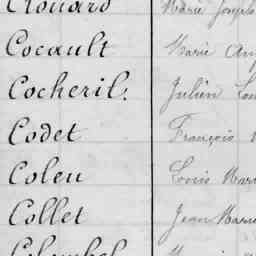 Clouard Marie Joseph
Cocault Marie Ang
Cocheril. Julien Lou
Codet François
Coleu Louis Mari
Collet Jean Marie
Colombel